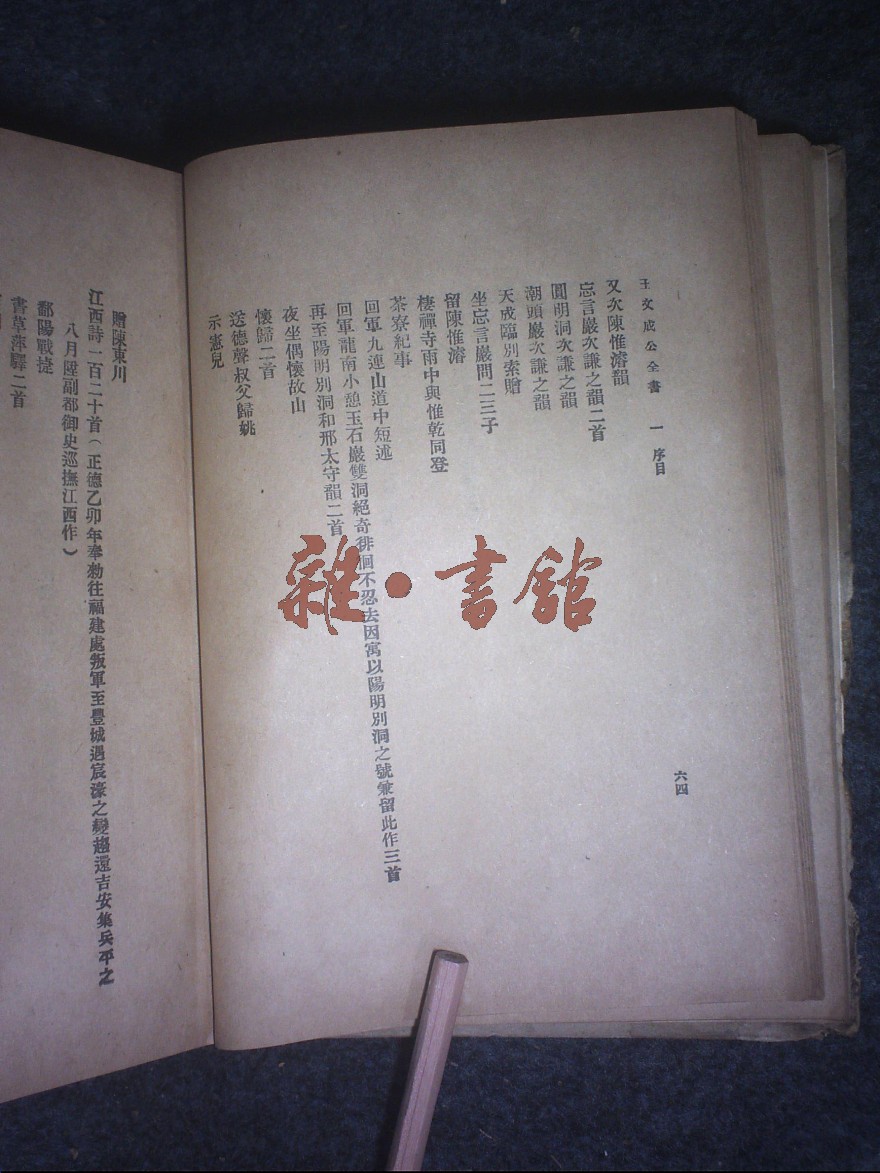 王文成公全書 一 序目 六四
又次陳惟濬韻
忘言巖次謙之韻二首
圓明洞次謙之韻
潮頭巖次謙之韻
天成臨別索贈
坐忘言巖問二三子
留陳惟濬
棲禪寺雨中與惟乾同登
茶寮紀事
回軍九連山道中短述
回軍龍南小憩玉石巖雙洞絕奇徘徊不忍去因寓以陽明別洞之號兼留此作三首
再至陽明別洞和邢太守韻二首
夜坐偶懷故山
懷歸二首
送德聲叔父歸姚
示憲兒
贈陳東川
江西詩一百二十首(正德乙卯年奉勑往福建處叛軍至豐城遇宸濠之變趨還吉安集兵平之
八月陞副都御史巡撫江西作)
鄱陽戰捷
書草萍驛二首
雜·書館